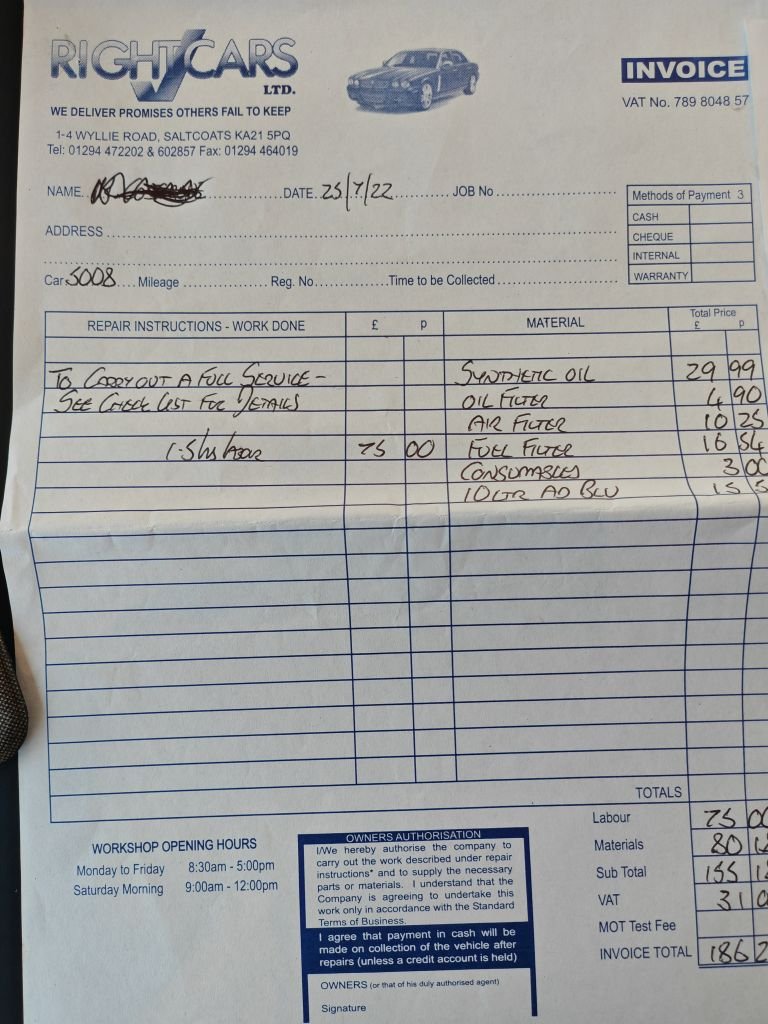 RIGHT CARS
LTD.
WE DELIVER PROMISES OTHERS FAIL TO KEEP
1-4 WYLLIE ROAD, SALTCOATS KA21 5PQ
Tel: 01294 472202 & 602857 Fax: 01294 464019
INVOICE
VAT No. 789 8048 57
NAME DATE 25/7/22 JOB No
ADDRESS
Methods of Payment 3
CASH
CHEQUE
INTERNAL
WARRANTY
Car 5008 Mileage Reg. No. Time to be Collected
REPAIR INSTRUCTIONS - WORK DONE £ p MATERIAL Total Price £ p
TO CARRY OUT A FULL SERVICE - SYNTHETIC OIL 29 99
SEE CHECK LIST FOR DETAILS OIL FILTER 4 90
AIR FILTER 10 25
1.5hs labor 75 00 FUEL FILTER 16 54
CONSUMABLES 3 00
10LTR AD BLU 15 5
TOTALS
Labour 75 00
Materials 80 1
Sub Total 155 1
VAT 31 0
MOT Test Fee
INVOICE TOTAL 186 2
WORKSHOP OPENING HOURS
Monday to Friday 8:30am - 5:00pm
Saturday Morning 9:00am - 12:00pm
OWNERS AUTHORISATION
I/We hereby authorise the company to
carry out the work described under repair
instructions* and to supply the necessary
parts or materials. I understand that the
Company is agreeing to undertake this
work only in accordance with the Standard
Terms of Business.
I agree that payment in cash will be
made on collection of the vehicle after
repairs (unless a credit account is held)
OWNERS (or that of his duly authorised agent)
Signature